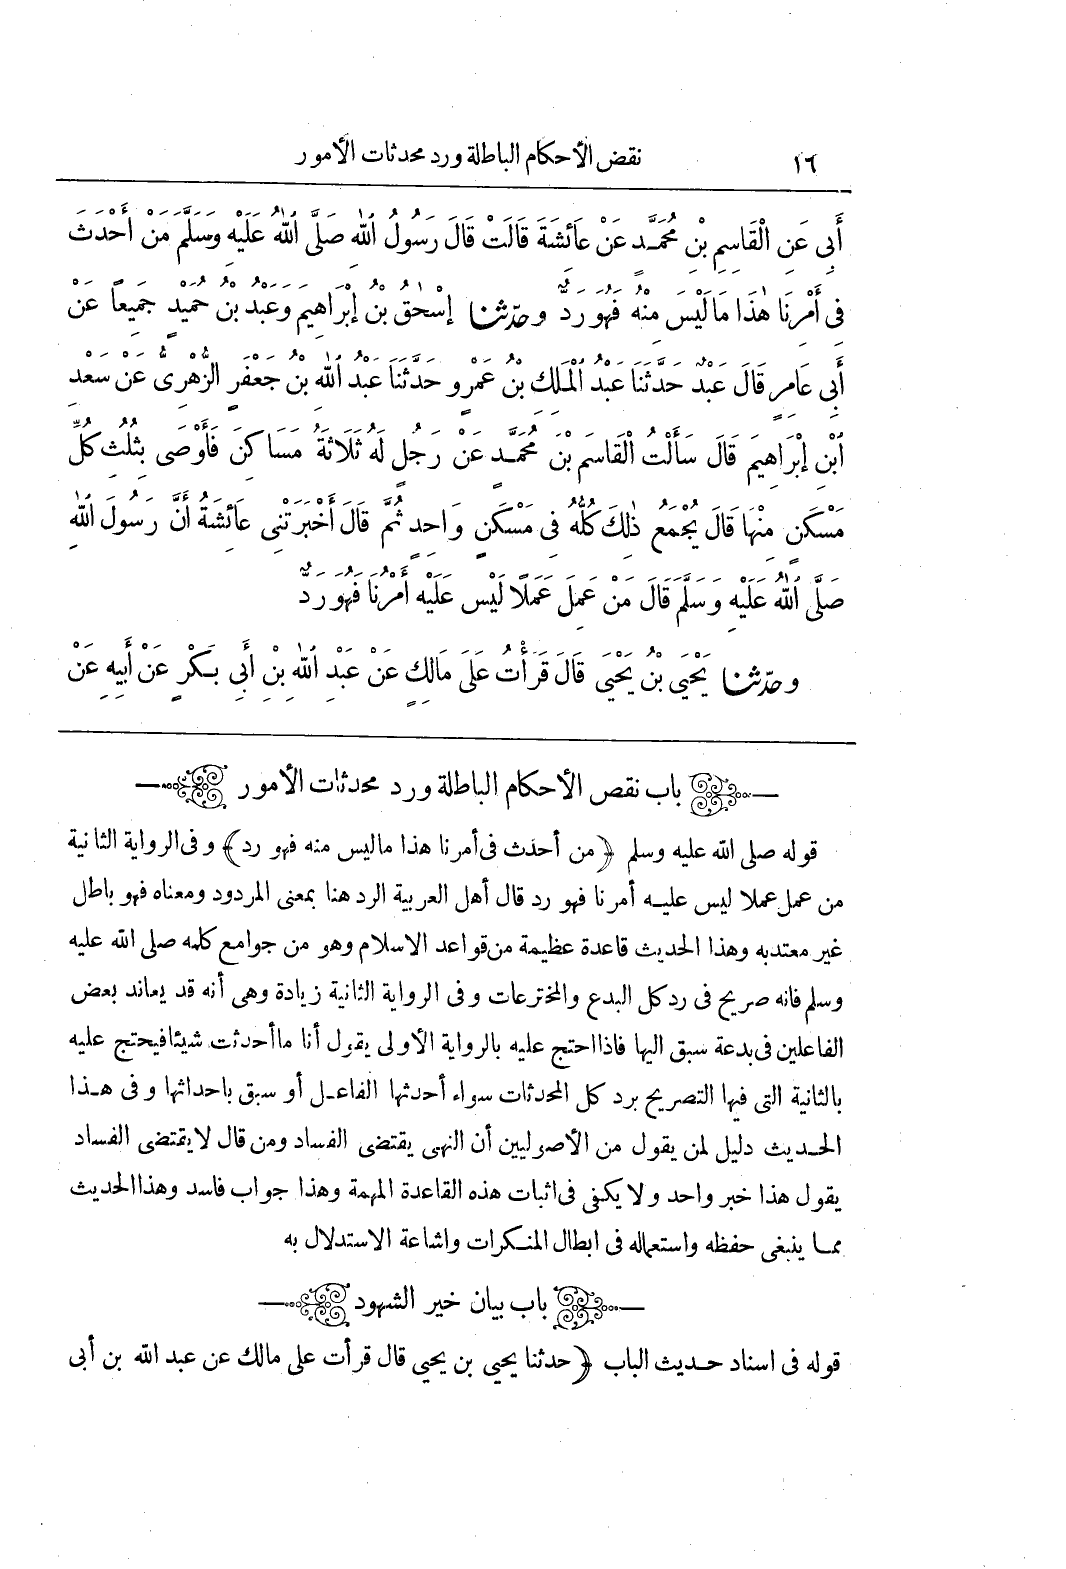 ١٦ نقض الأحكام الباطلة ورد محدثات الأمور
أَبِي عَنِ الْقَاسِمِ بْنِ مُحَمَّدٍ عَنْ عَائِشَةَ قَالَتْ قَالَ رَسُولُ اللهِ صَلَّى اللهُ عَلَيْهِ وَسَلَّمَ مَنْ أَحْدَثَ
فِي أَمْرِنَا هٰذَا مَا لَيْسَ مِنْهُ فَهُوَ رَدٌّ وحدّثنا إِسْحٰقُ بْنُ إِبْرَاهِيمَ وَعَبْدُ بْنُ حُمَيْدٍ جَمِيعًا عَنْ
أَبِي عَامِرٍ قَالَ عَبْدٌ حَدَّثَنَا عَبْدُ الْمَلِكِ بْنُ عَمْرٍو حَدَّثَنَا عَبْدُ اللهِ بْنُ جَعْفَرٍ الزُّهْرِىُّ عَنْ سَعْدِ
ابْنِ إِبْرَاهِيمَ قَالَ سَأَلْتُ الْقَاسِمَ بْنَ مُحَمَّدٍ عَنْ رَجُلٍ لَهُ ثَلَاثَةُ مَسَاكِنَ فَأَوْصَى بِثُلُثِ كُلِّ
مَسْكَنٍ مِنْهَا قَالَ يُجْمَعُ ذٰلِكَ كُلُّهُ فِى مَسْكَنٍ وَاحِدٍ ثُمَّ قَالَ أَخْبَرَتْنِى عَائِشَةُ أَنَّ رَسُولَ اللهِ
صَلَّى اللهُ عَلَيْهِ وَسَلَّمَ قَالَ مَنْ عَمِلَ عَمَلًا لَيْسَ عَلَيْهِ أَمْرُنَا فَهُوَ رَدٌّ
وحدّثنا يَحْيَى بْنُ يَحْيَى قَالَ قَرَأْتُ عَلَى مَالِكٍ عَنْ عَبْدِ اللهِ بْنِ أَبِى بَكْرٍ عَنْ أَبِيهِ عَنْ
باب نقص الأحكام الباطلة ورد محدثات الأمور
قوله صلى الله عليه وسلم ﴿من أحدث فى أمرنا هذا ماليس منه فهو رد﴾ وفى الرواية الثانية
من عمل عملا ليس عليه أمرنا فهو رد قال أهل العربية الرد هنا بمعنى المردود ومعناه فهو باطل
غير معتدبه وهذا الحديث قاعدة عظيمة من قواعد الاسلام وهو من جوامع كلمه صلى الله عليه
وسلم فانه صريح فى رد كل البدع والمخترعات وفى الرواية الثانية زيادة وهى أنه قد يعاند بعض
الفاعلين فى بدعة سبق اليها فاذا احتج عليه بالرواية الأولى يقول أنا ما أحدثت شيئا فيحتج عليه
بالثانية التى فيها التصريح برد كل المحدثات سواء أحدثها الفاعل أو سبق باحداثها وفى هذا
الحديث دليل لمن يقول من الأصوليين أن النهى يقتضى الفساد ومن قال لا يقتضى الفساد
يقول هذا خبر واحد ولا يكفى فى اثبات هذه القاعدة المهمة وهذا جواب فاسد وهذا الحديث
مما ينبغى حفظه واستعماله فى ابطال المنكرات واشاعة الاستدلال به
باب بيان خير الشهود
قوله فى اسناد حديث الباب ﴿حدثنا يحيى بن يحيى قال قرأت على مالك عن عبد الله بن أبى